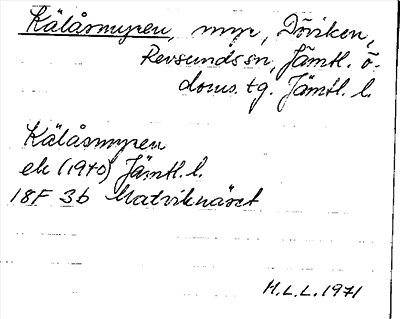 Kälåsmyren, myr, Döviken,
Revsunds sn, Jämtl. ö.
doms. tg. Jämtl. l.
Kälåsmyren
ek (1940) Jämtl. l.
18F 3b Matviknäset
H.L.L. 1971